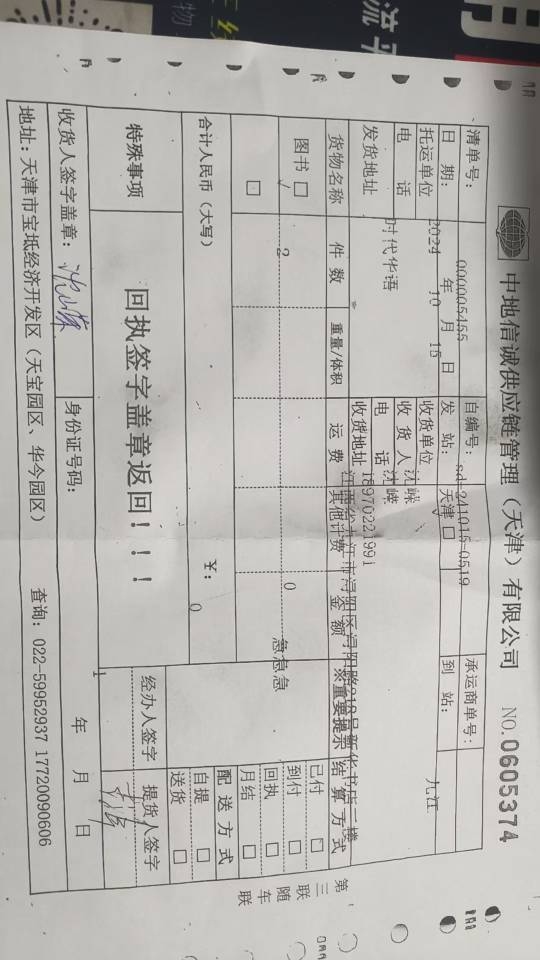 中地信诚供应链管理（天津）有限公司 NO.0605374
清单号： 000005455 自编号：sd-241015-0519 承运商单号：
日期： 2024 年 10 月 15 日 发站： 天津 到站： 九江
托运单位 时代华语 收货单位 沈嵘
电话 收货人 沈嵘
电话 18970221991
发货地址 收货地址
货物名称 件数 重量/体积 运费 其他计费 金额 ※重要提示 结算方式
图书 □ √ 2 0 急急急
已付 □
到付 □
回执 □
月结 □
配送方式
自提 □
送货 □
合计人民币（大写） ¥： 0
特殊事项 回执签字盖章返回！！！ 经办人签字 提货人签字
1
收货人签字盖章： 身份证号码： 年 月 日
地址：天津市宝坻经济开发区（天宝园区、华今园区） 查询：022-59952937 17720090606
第三联 随车联